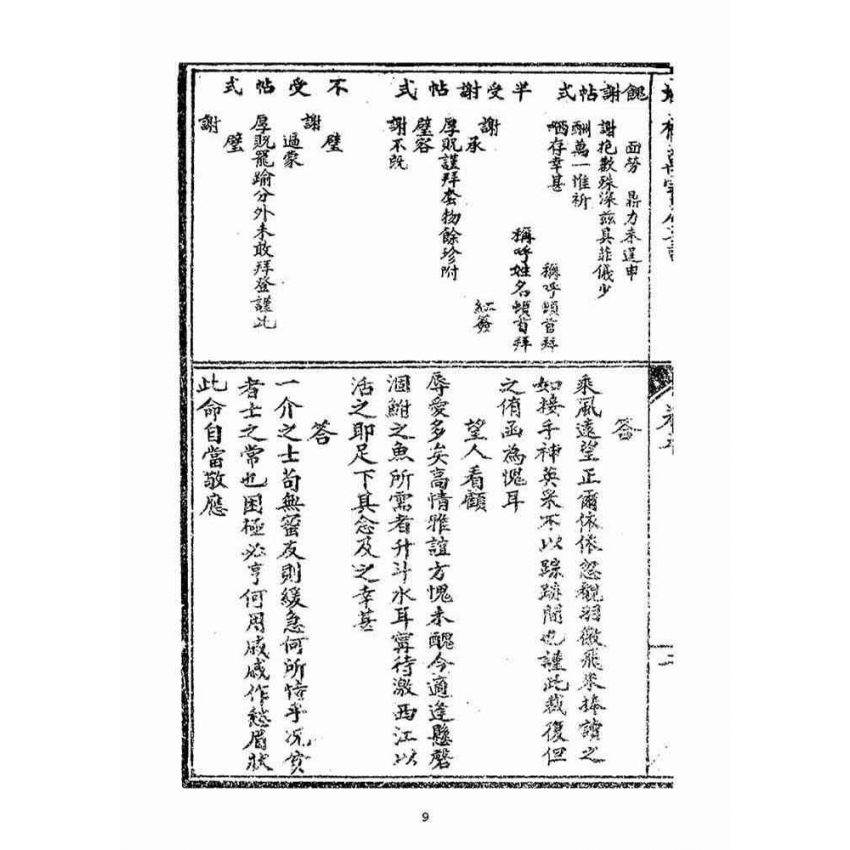 餽謝帖式
面勞 鼎力未遑申
謝抱歉殊深茲具菲儀少
酬萬一惟祈
哂存幸甚
稱呼頓首拜
稱呼姓名頓首拜
半受謝帖式
謝
承
厚貺謹拜壹物餘珍附
紅簽
璧容
謝不既
不受謝帖式
璧
謝
過蒙
厚貺罷踰分外未敢拜登謹此
璧
謝
答
乘風遠望正爾依依忽觀羽檄飛來捧讀之
如接手神英采不以踪跡間也謹此裁復但
之侑函為愧耳
望人看顧
辱愛多矣高情雅誼方愧未醜今適逢懸磬
涸鮒之魚所需者升斗水耳寧待激西江以
活之耶足下其念及之幸甚
答
一介之士苟無蜜友則緩急何所恃乎況貧
者士之常也困極必亨何用戚戚作愁眉狀
此命自當敬應
9